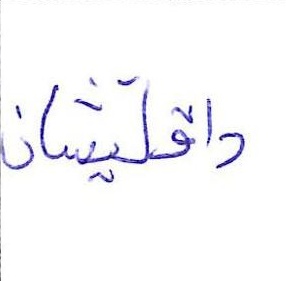 داقلیشان